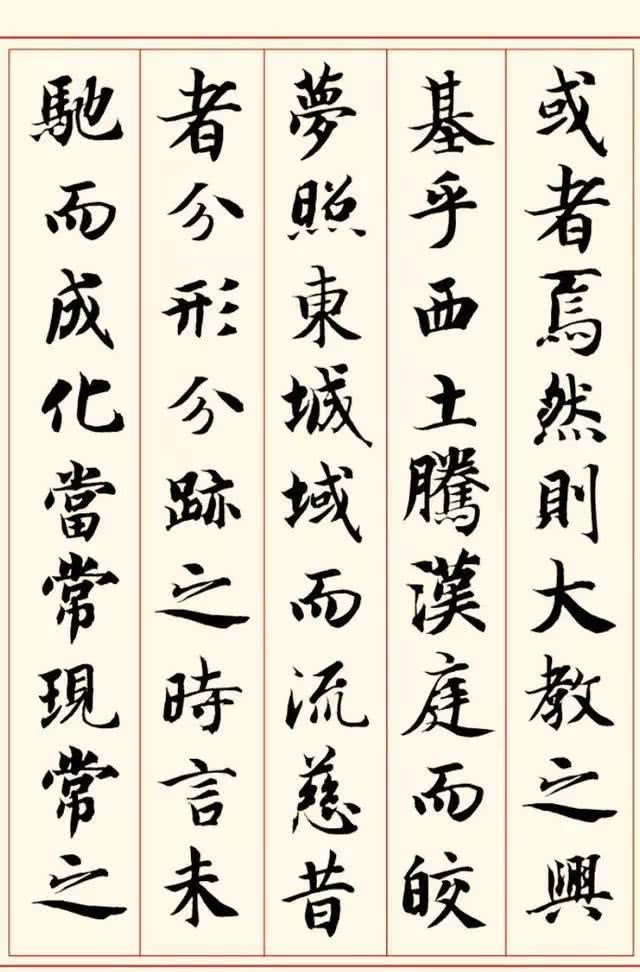 或者焉然則大教之興
基乎西土騰漢庭而皎
夢照東城域而流慈昔
者分形分跡之時言未
馳而成化當常現常之